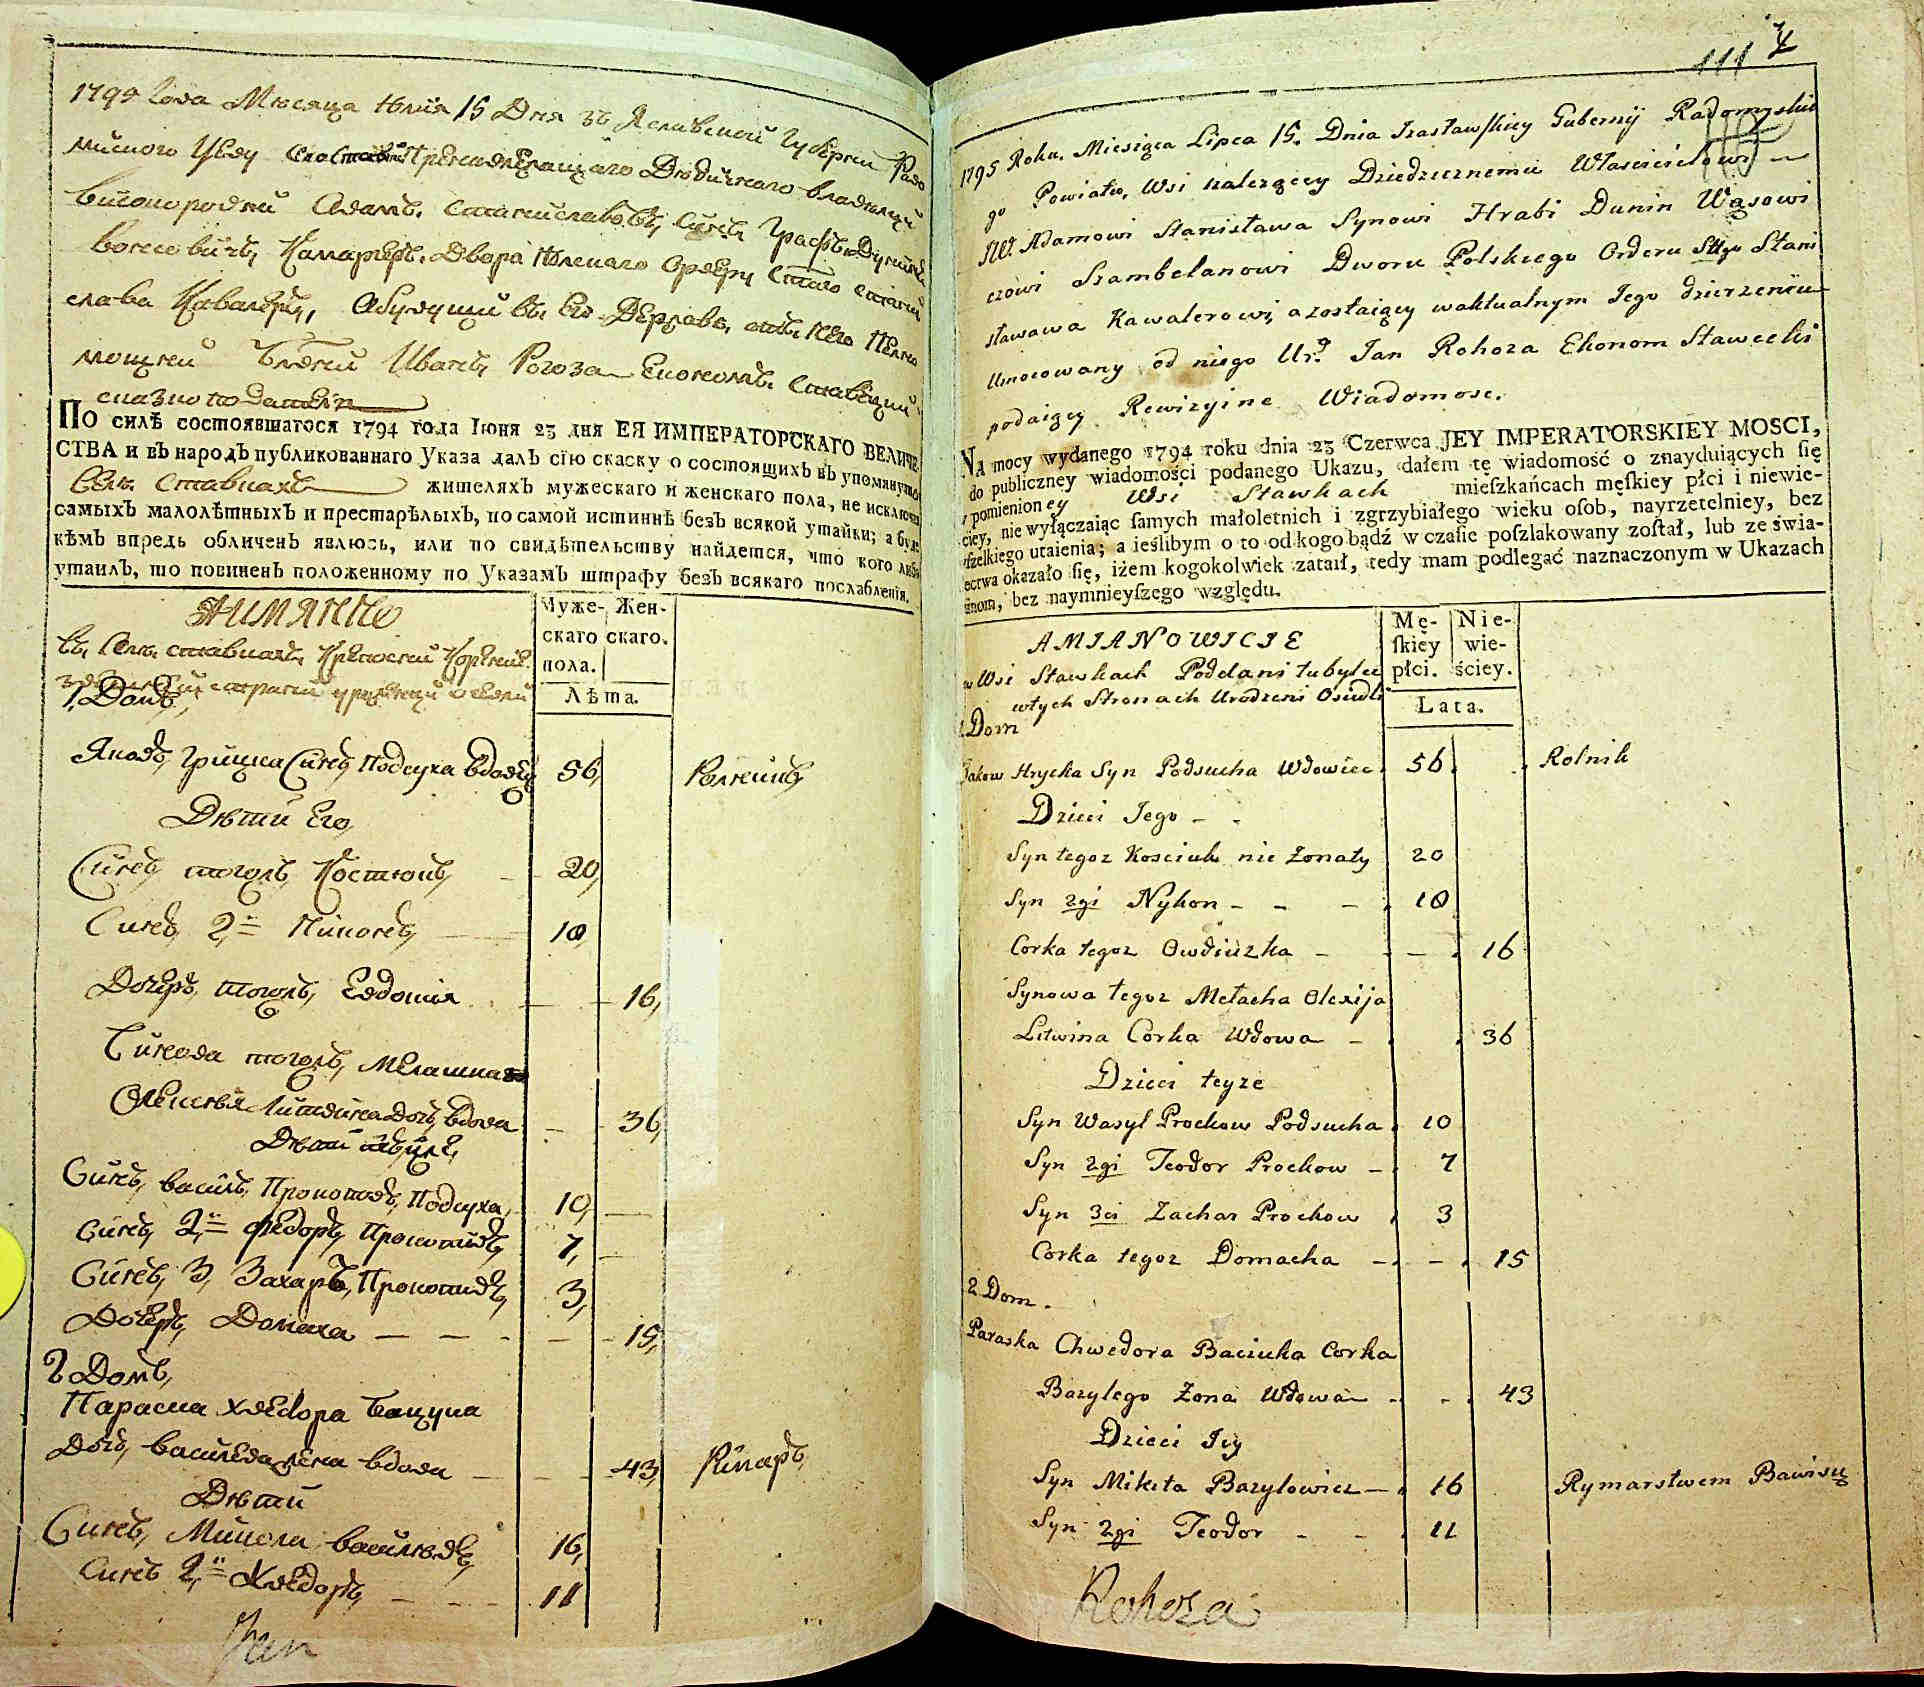 1795 Года Мѣсяца Июля 15 Дня
ПО силѣ состоявшагося 1794 года Іюня 23 дня ЕЯ ИМПЕРАТОРСКАГО ВЕЛИЧЕ-
СТВА и въ народъ публикованнаго Указа далъ сію скаску о состоящихъ въ упомянутомъ
Селѣ Ставкахъ жителяхъ мужескаго и женскаго пола, не исключая
самыхъ малолѣтныхъ и престарѣлыхъ, по самой истиннѣ безъ всякой утайки; а буде
кѣмъ впредь обличенъ явлюсь, или по свидѣтельству найдется, что кого либо
утаилъ, то повиненъ положенному по Указамъ штрафу безъ всякаго послабленія.
АИМЯННО
Муже- Жен-
скаго скаго.
пола.
Лѣта.
1. Домъ,
Яковъ, Грицка Синъ, Подсуха вдовец 56, Ролникъ
Дѣти Его,
Синъ, тогожъ, Костюкъ, 20,
Синъ, 2й Никонъ, 10,
Дочеръ, тогожъ, Евдокия 16,
Синова тогожъ, Мелашка
Олексѣя Литвина дочъ, вдова 36,
Дѣти
Синъ, василъ, Прокоповъ, Подсуха, 10,
Синъ, 2й Федоръ, Прокоповъ, 7,
Синъ, 3, Захаръ, Прокоповъ, 3,
Дочеръ, Домаха 15,
2 Домъ,
Параска Хведора Бацука
Дочъ, василева жена вдова 43, Римаръ,
Дѣти
Синъ, Микита василювъ, 16,
Синъ 2й Хведоръ, 11
Jan
111
1795 Roku. Miesiąca Lipca 15. Dnia Izasławskiey Gubernij Radomyskie
go Powiatu, Wsi należącey Dziedzicznemu Właścicielowi
JW. Adamowi Stanisława Synowi Hrabi Dunin Wąsowi
czowi Szambelanowi Dworu Polskiego Orderu Stgo Stani
sławawa Kawalerowi, a zostaiącey waktualnym Jego dzierzeniu
Umocowany od niego Ur. Jan Rohoza Ekonom Stawecki
podaiący Rewizyine Wiadomosc.
NA mocy wydanego 1794 roku dnia 23 Czerwca JEY IMPERATORSKIEY MOSCI,
do publiczney wiadomości podanego Ukazu, dałem tę wiadomość o znayduiących się
w pomienioney Wsi Stawkach mieſzkańcach męſkiey płci i niewie-
ściey, nie wyłączaiąc ſamych małoletnich i zgrzybiałego wieku oſob, nayrzetelniey, bez
wſzelkiego utaienia; a ieślibym o to od kogo bądź w czaſie poſzlakowany zoſtał, lub ze świa-
dectwa okazało się, iżem kogokolwiek zataił, tedy mam podlegać naznaczonym w Ukazach
ſztrafom, bez naymnieyſzego względu.
AMIANOWICIE
Mę- Nie-
ſkiey wie-
płci. ściey.
Lata.
w Wsi Stawkach Poddani tubylcy
wtych Stronach Urodzeni Osiedli
1. Dom
Jakow Hrycka Syn Podsucha Wdowiec 56. Rolnik
Dzieci Jego
Syn tegoz Kosciuk nie Zonaty 20
Syn 2gi Nykon 10
Corka tegoz Owdiuzka 16
Synowa tegoz Mełacha Olexija
Litwina Corka Wdowa 36
Dzieci teyze
Syn Wasyl Prockow Podsucha 10
Syn 2gi Teodor Prockow 7
Syn 3ci Zachar Prockow 3
Corka tegoz Domacha 15
2 Dom.
Paraska Chwedora Baciuka Corka
Bazylego Zona Wdowa 43
Dzieci Jey
Syn Mikita Bazylowicz 16 Rymarstwem Bawiący
Syn 2gi Teodor 11
Rohoza